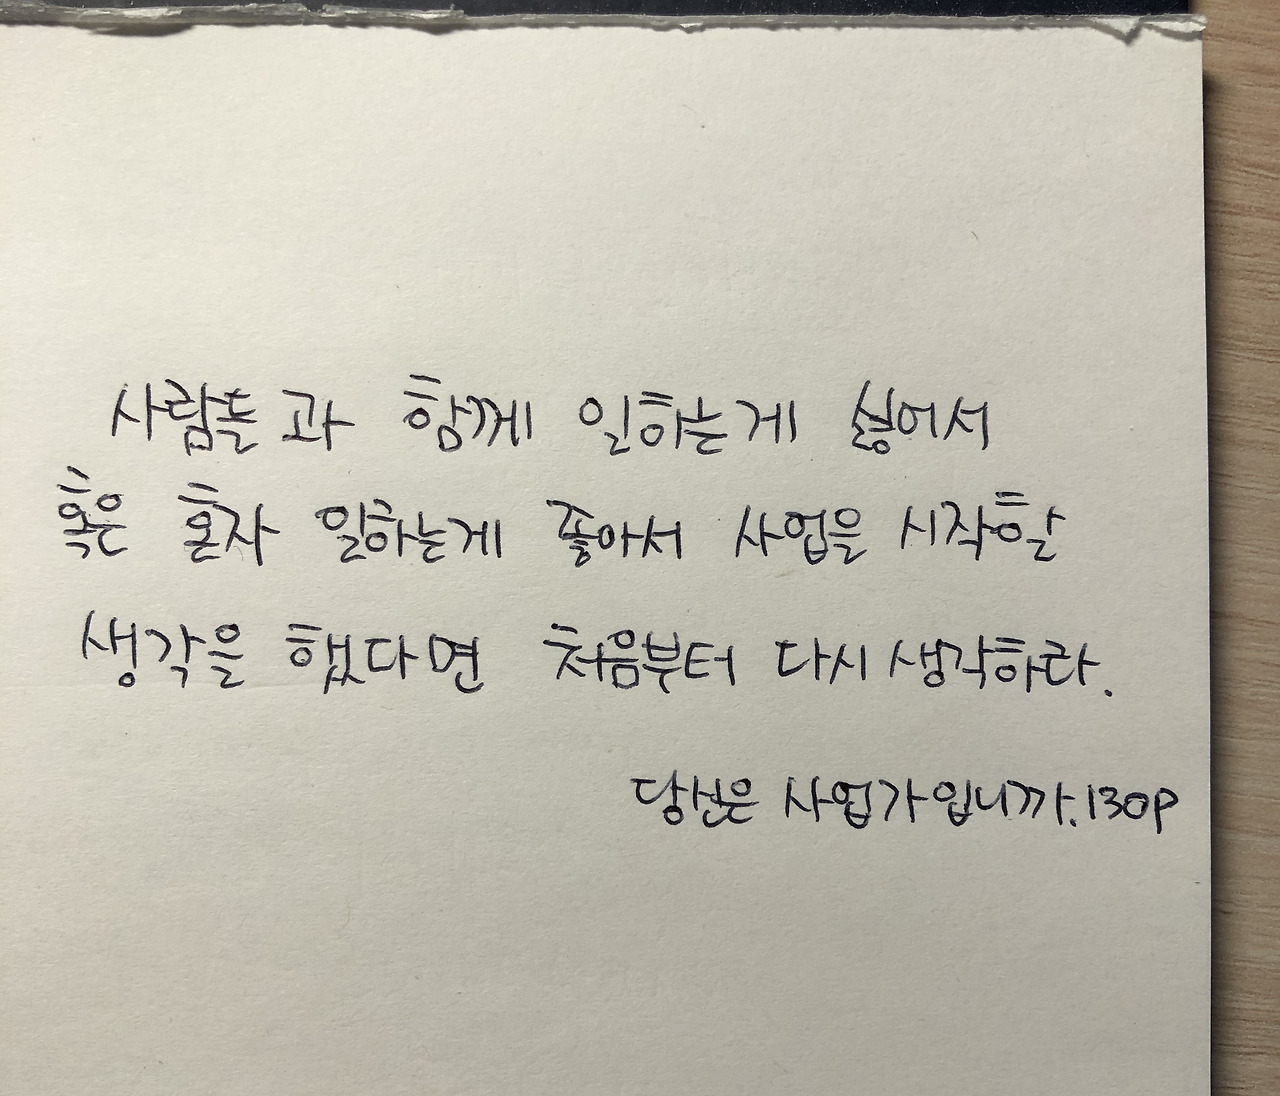 사람들과 함께 일하는게 싫어서
혹은 혼자 일하는게 좋아서 사업을 시작할
생각을 했다면 처음부터 다시 생각하라.
당신은 사업가입니까. 130P